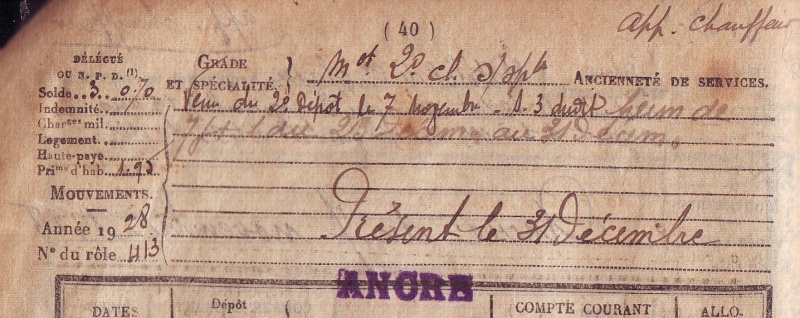 ( 40 )
app. chauffeur
DÉLÉGUÉ
OU N. P. D. (1)
Solde.. 3. 0.70
Indemnité.
Char.ges mil.
Logement.
Haute-paye.
Prime d'hab. 1.95
GRADE
ET SPÉCIALITÉ
Mot 2e cl. s/spte
ANCIENNETÉ DE SERVICES.
Venu du 2e Dépôt le 7 Novembre
au 31 Décem.
MOUVEMENTS.
Année 1928
N° du rôle 413
Présent le 31 Décembre
ANCRE
DATES
Dépôt
COMPTE COURANT
ALLO-